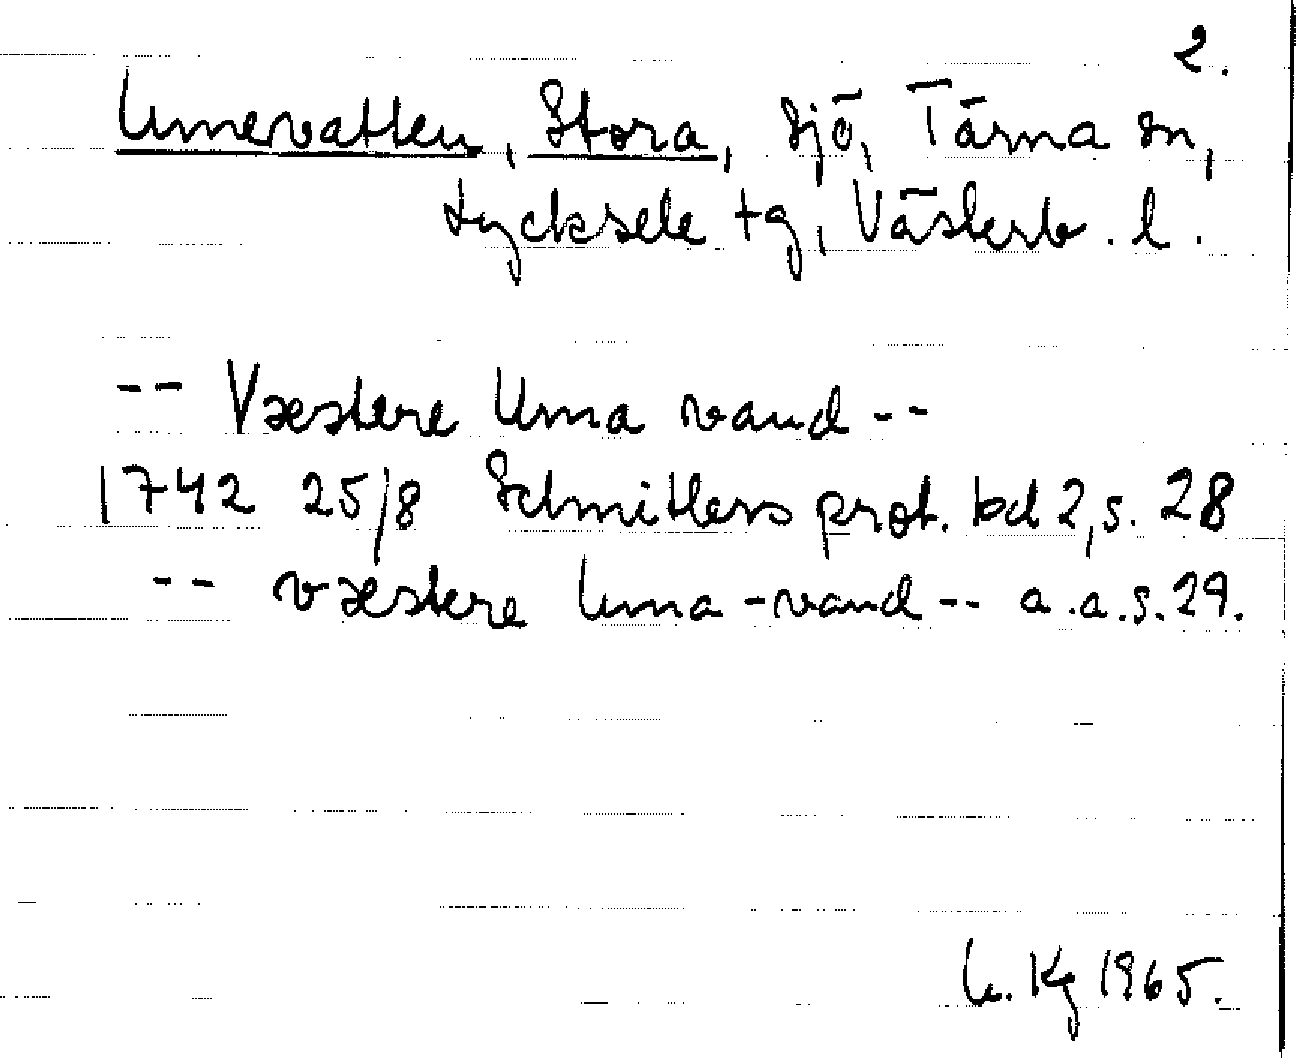 2.
Umevatten, Stora, sjö, Tärna sn,
Lycksele tg, Västerb. l.
-- Væstere Uma vand --
1742 25/8 Schnitlers prot. bd 2, s. 28
-- væstere Uma-vand -- a.a.s. 29.
U. Kg 1965.